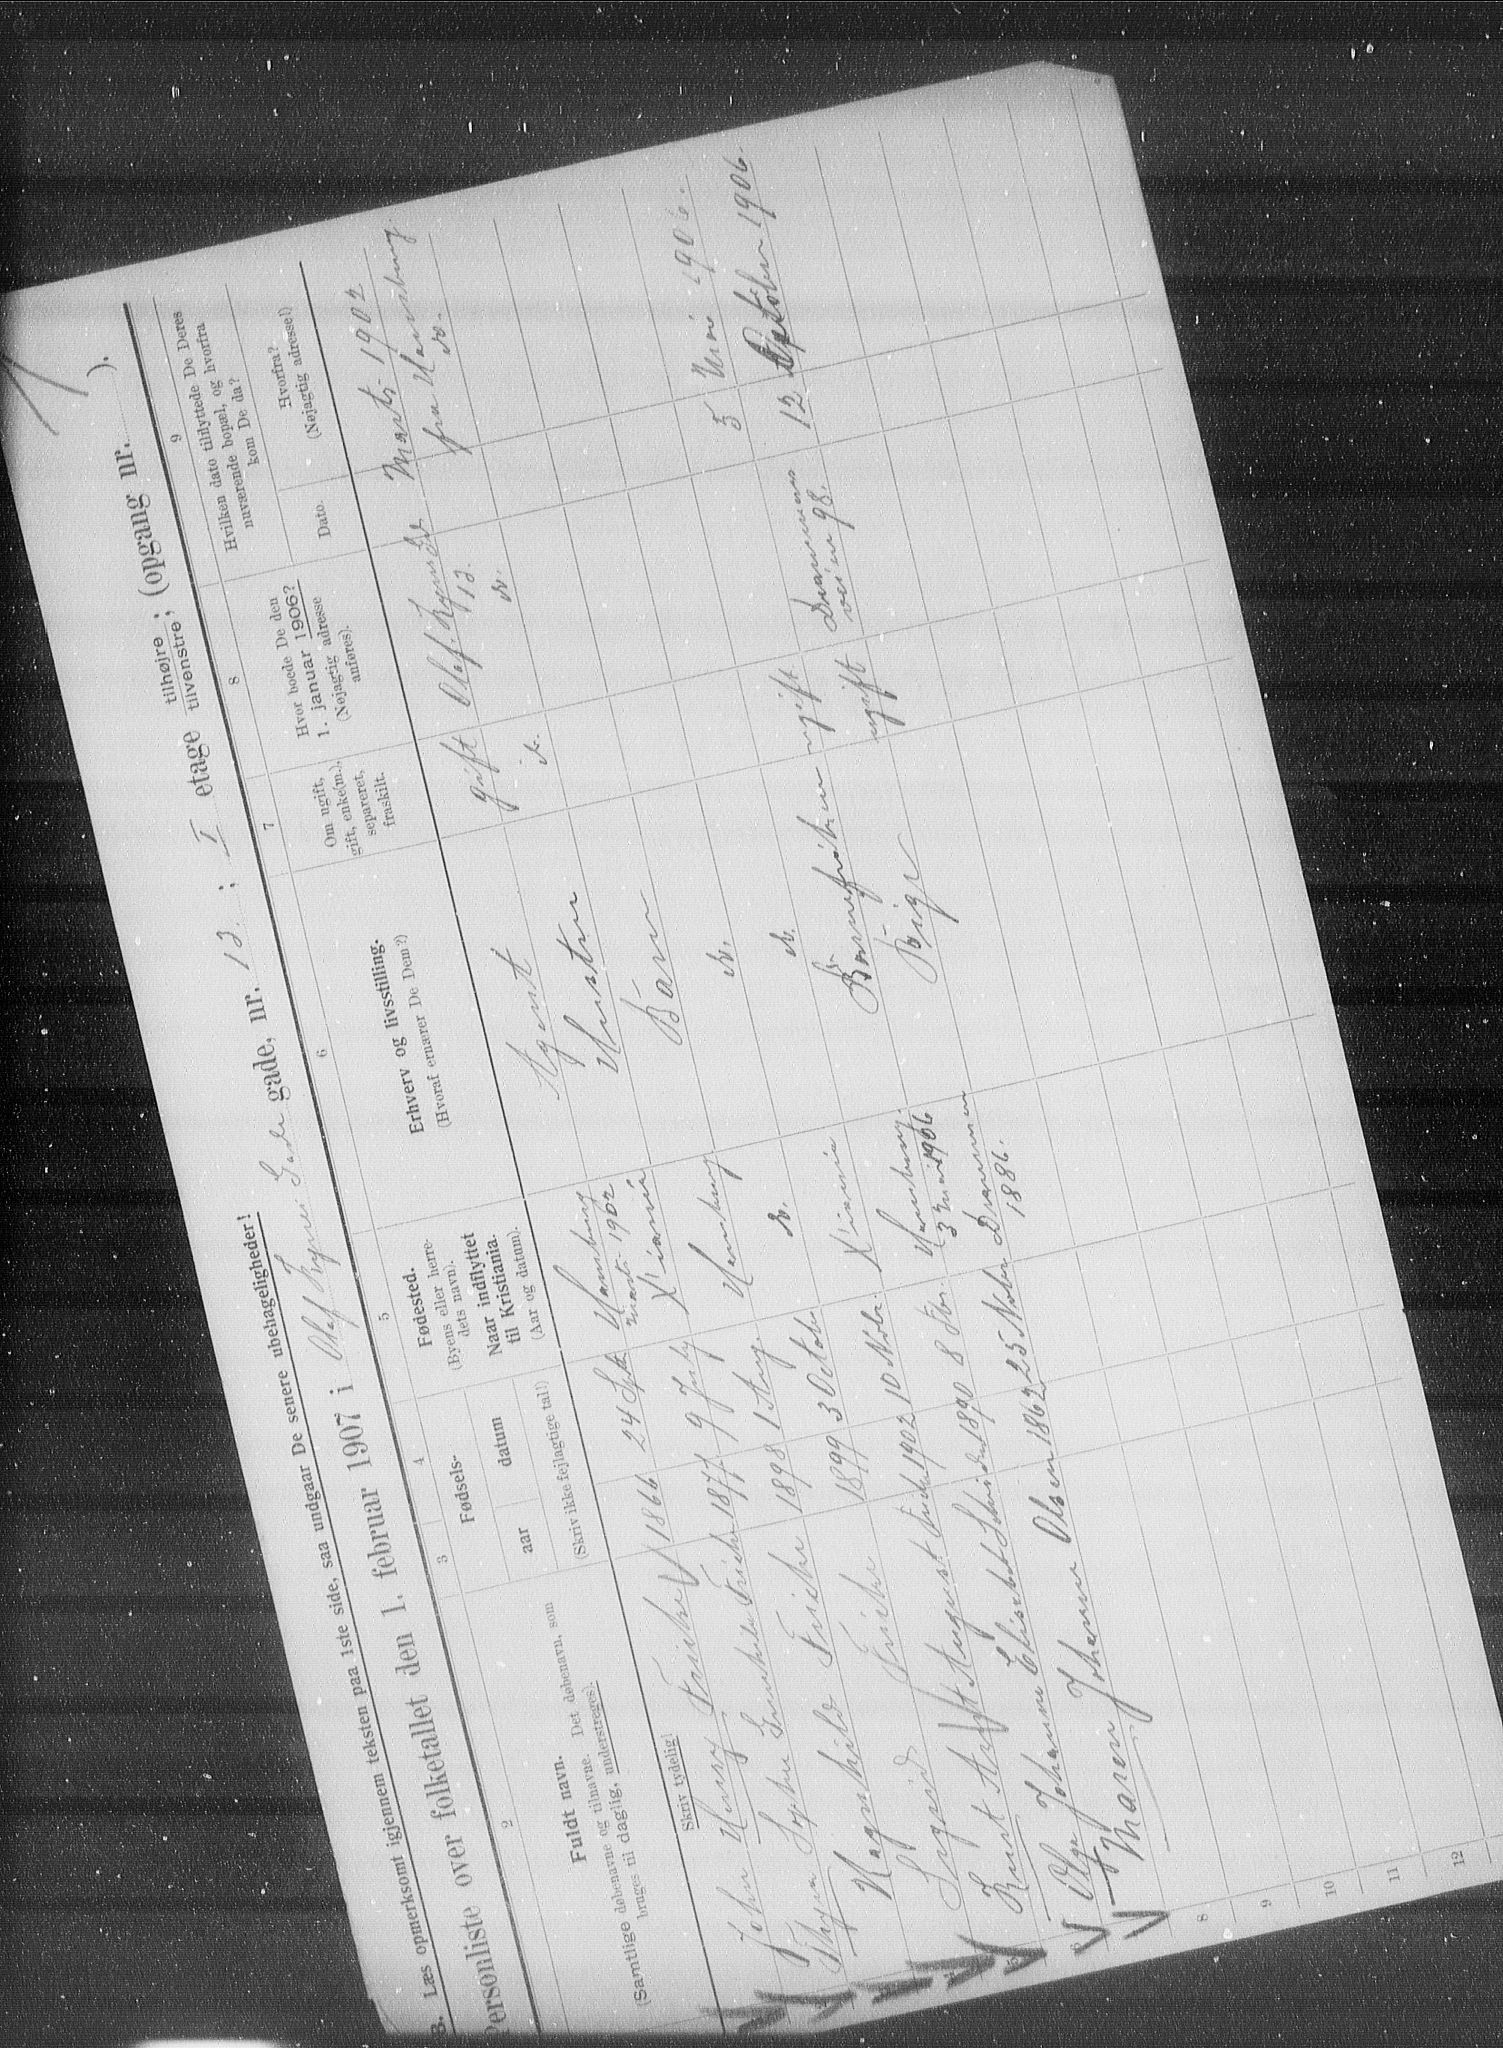 B. Læs opmerksomt igjennem teksten paa 1ste side, saa undgaar De senere ubehageligheder!
Personliste over folketallet den 1. februar 1907 i Olaf Kyrres Gade gade, nr. 12 ; I etage tilhøjre ; tilvenstre ; (opgang nr. ).
2
3
4
5
6
7
8
9
Fuldt navn.
(Samtlige døbenavne og tilnavne. Det døbenavn, som
bruges til daglig, understreges).
Skriv tydelig!
Fødsels-
aar
datum
(Skriv ikke fejlagtige tal!)
Fødested.
(Byens eller herre-
dets navn).
Naar indflyttet
til Kristiania.
(Aar og datum).
Erhverv og livsstilling.
(Hvoraf ernærer De Dem?)
Om ugift,
gift, enke(m.),
separeret,
fraskilt.
Hvor boede De den
1. januar 1906?
(Nøjagtig adresse
anføres).
Hvilken dato tilflyttede De Deres
nuværende bopæl, og hvorfra
kom De da?
Dato.
Hvorfra?
(Nøjagtig adresse!)
John Henry Fricke 1866 24 Sept Hamburg Marts 1902 Agent gift Olaf Kyres Gd 12. Marts 1902 fra Hamburg
Sophie Fricke 1877 9 July X'iania Hustru do. do. do.
Ragnhild Fricke 1898 1 Aug. Hamburg Barn
Sigrid Fricke 1899 3 October do. do.
Knut August Fricke 1902 10 Nobr. X'iania do.
Olga Johanne Elisabet 1890 8 Hamburg. 3 Mai 1906 Barnefrøken ugift 5 1906.
Maren Johanne Olsen 1862 25 Nober Drammen 1886. Pige ugift Drammens veien 98. 12 October 1906.
8
9
10
11
12